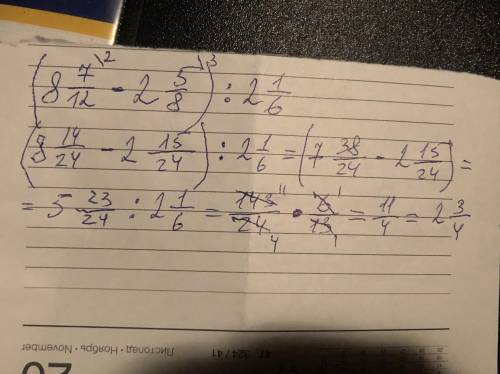 (8 7/12 \2 - 2 5/8 \3) : 2 1/6
(8 14/24 - 2 15/24) : 2 1/6 = (7 38/24 - 2 15/24) =
= 5 23/24 : 2 1/6 = 143 11/24 4 · 6 1/13 1 = 11/4 = 2 3/4
Листопад • Ноябрь • November
324 / 41